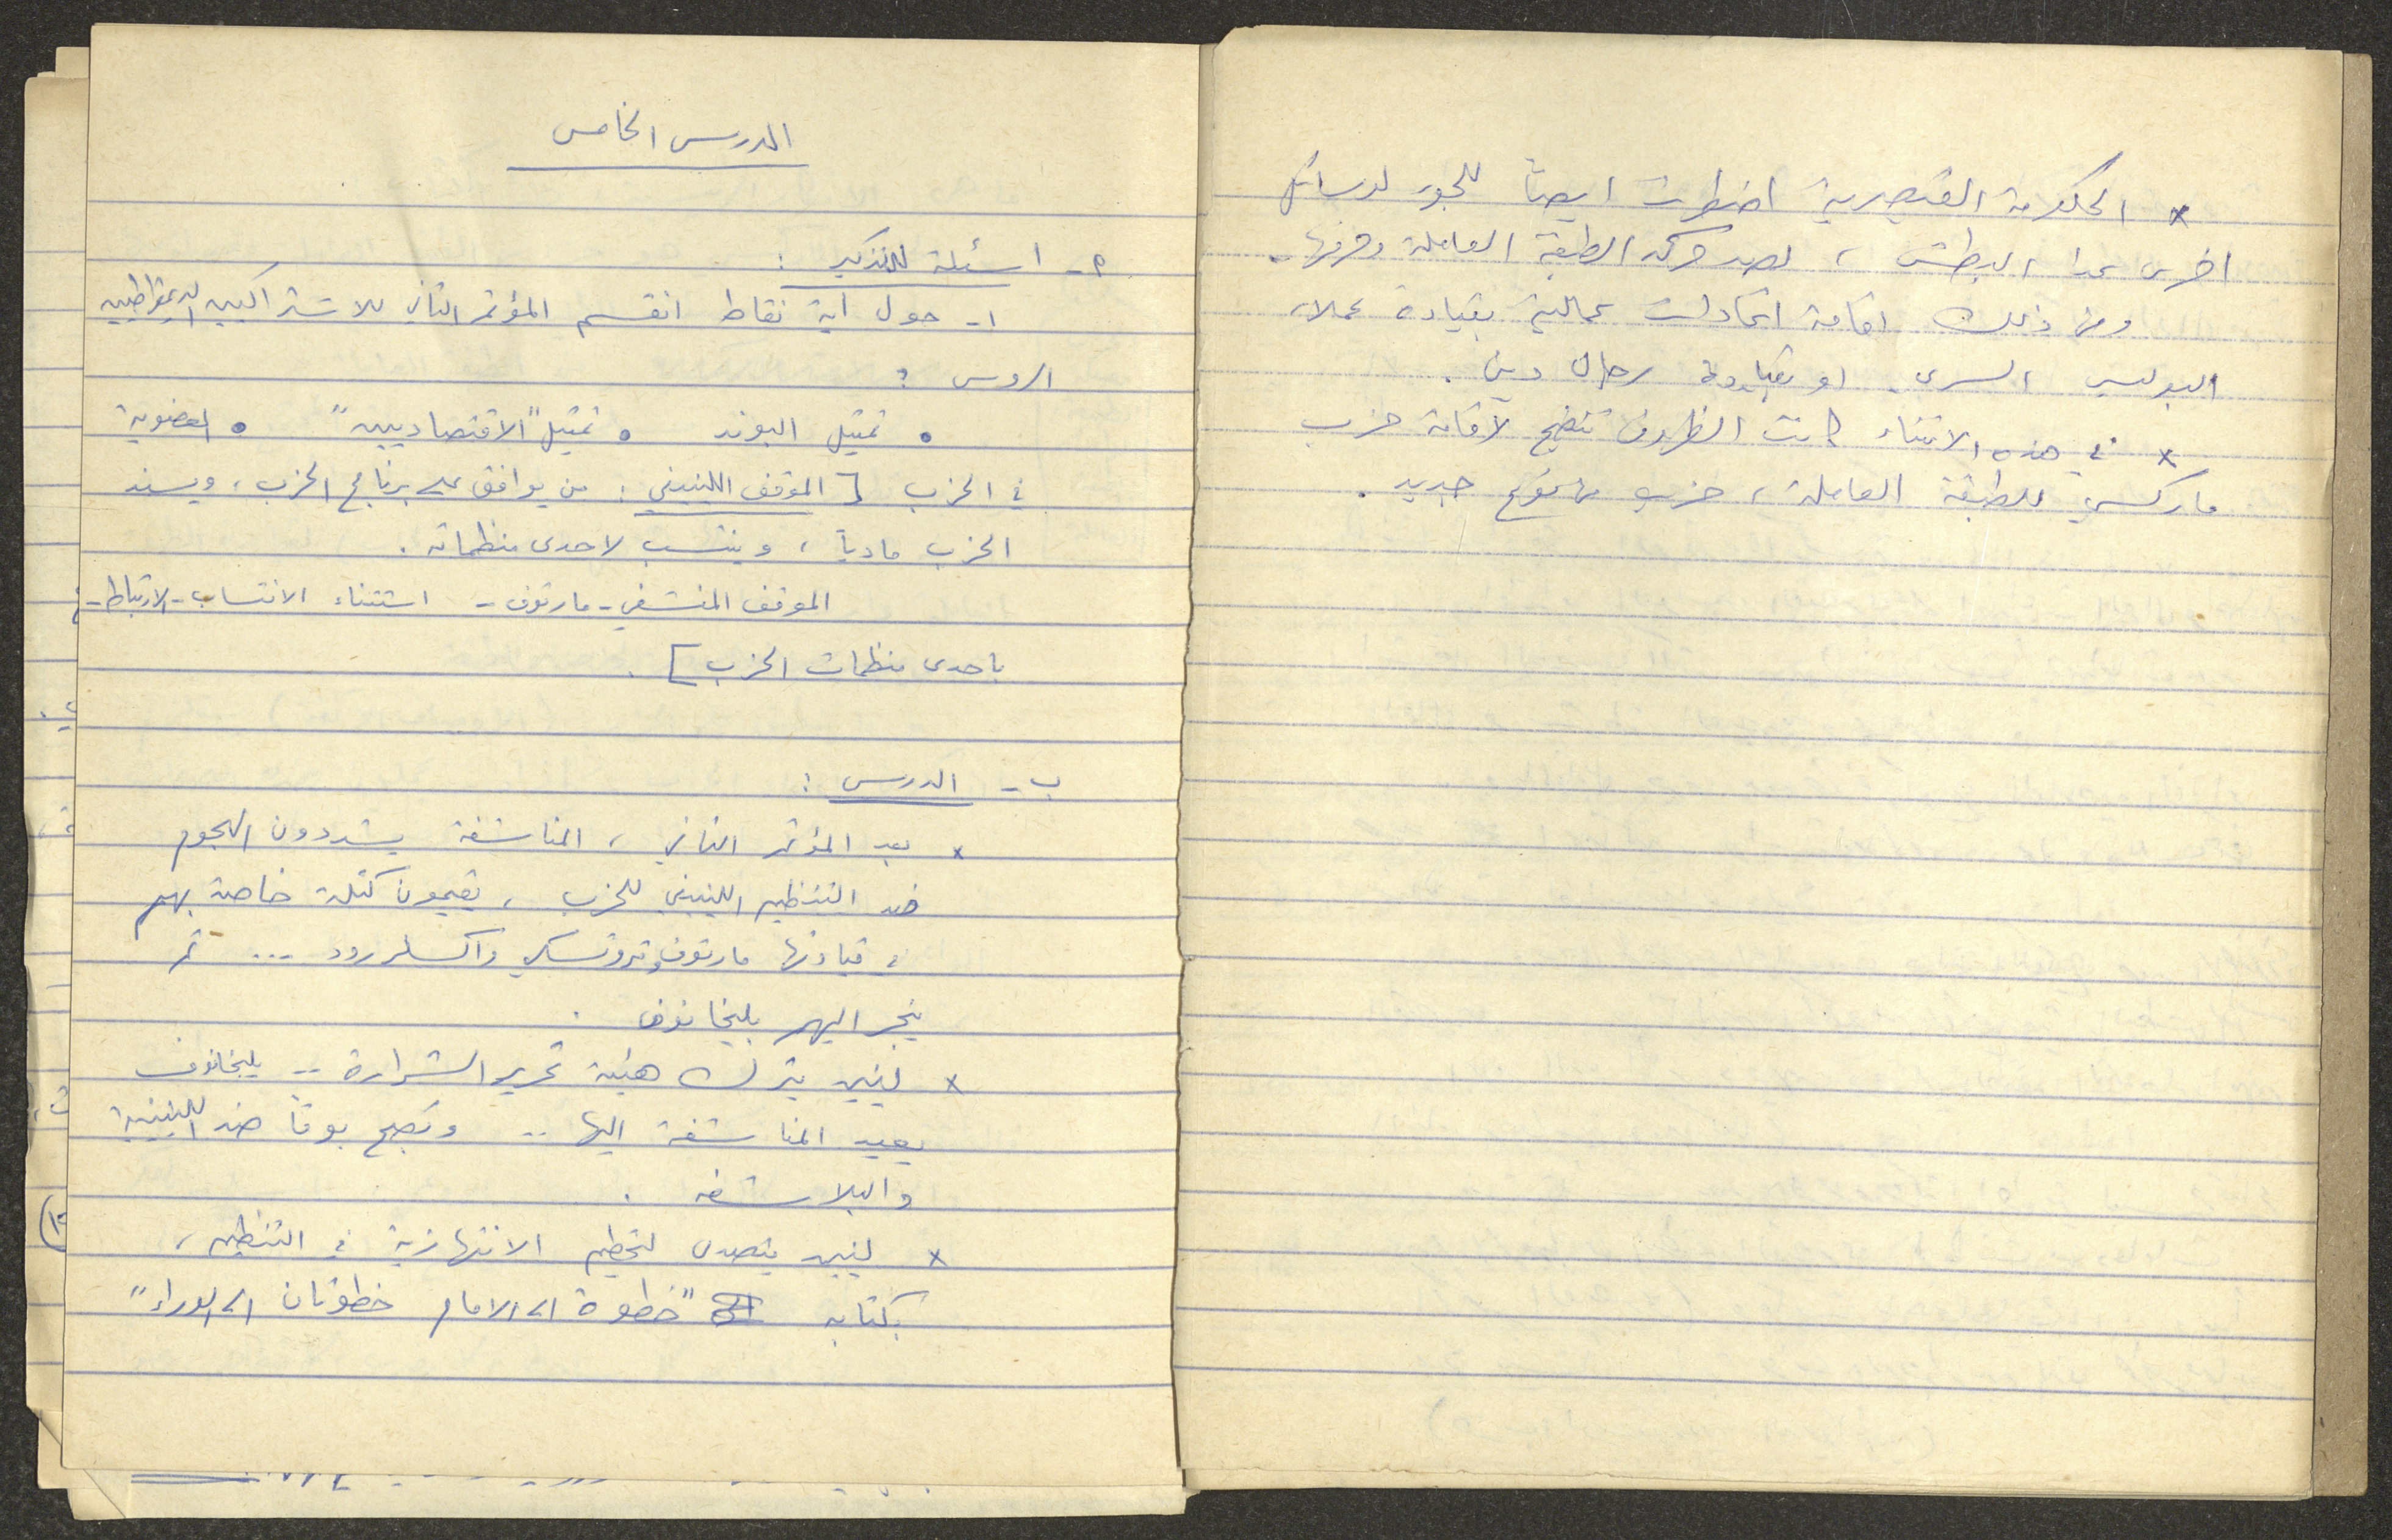 * الحكومة القيصرية اضطرت ايضاً للجوء لوسائل
اخرى عدا البطش ، لصد حركة الطبقة العاملة وحرفها .
ومن ذلك اقامة اتحادات عمالية بقيادة عملاء
البوليس السري . او بقيادة رجال دين .
* في هذه الاثناء كانت الظروف تنضج لاقامة حزب
ماركسي للطبقة العاملة ، حزب من نوع جديد .
الدرس الخامس
أ - اسئلة للتذكير :
١- حول أية نقاط انقسم المؤتمر الثاني للاشتراكيين الديمقراطيين
الروس ؟
• تمثيل البوند • تمثيل "الاقتصاديين" • العضوية
في الحزب [ الموقف اللينيني : من يوافق على برنامج الحزب ، ويسند
الحزب مادياً ، وينتسب لاحدى منظماته .
الموقف المنشفي - مارتوف - استثناء الانتساب - الارتباط -
باحدى منظمات الحزب ] .
ب - الدرس :
* بعد المؤتمر الثاني ، المناشفة يشددون الهجوم
ضد التنظيم اللينيني للحزب ، يقيمون كتلة خاصة بهم
في قيادتها مارتوف وتروتسكي واكسلرود ... ثم
ينجر اليهم بليخانوف .
* لينين يترك هيئة تحرير الشرارة .. بليخانوف
يعيد المناشفة اليها .. وتصبح بوقاً ضد اللينينية
والبلاشفة .
* لينين يتصدى لتحطيم الانتهازية في التنظيم ،
بكتابه "خطوة الى الامام خطوتان الى الوراء"